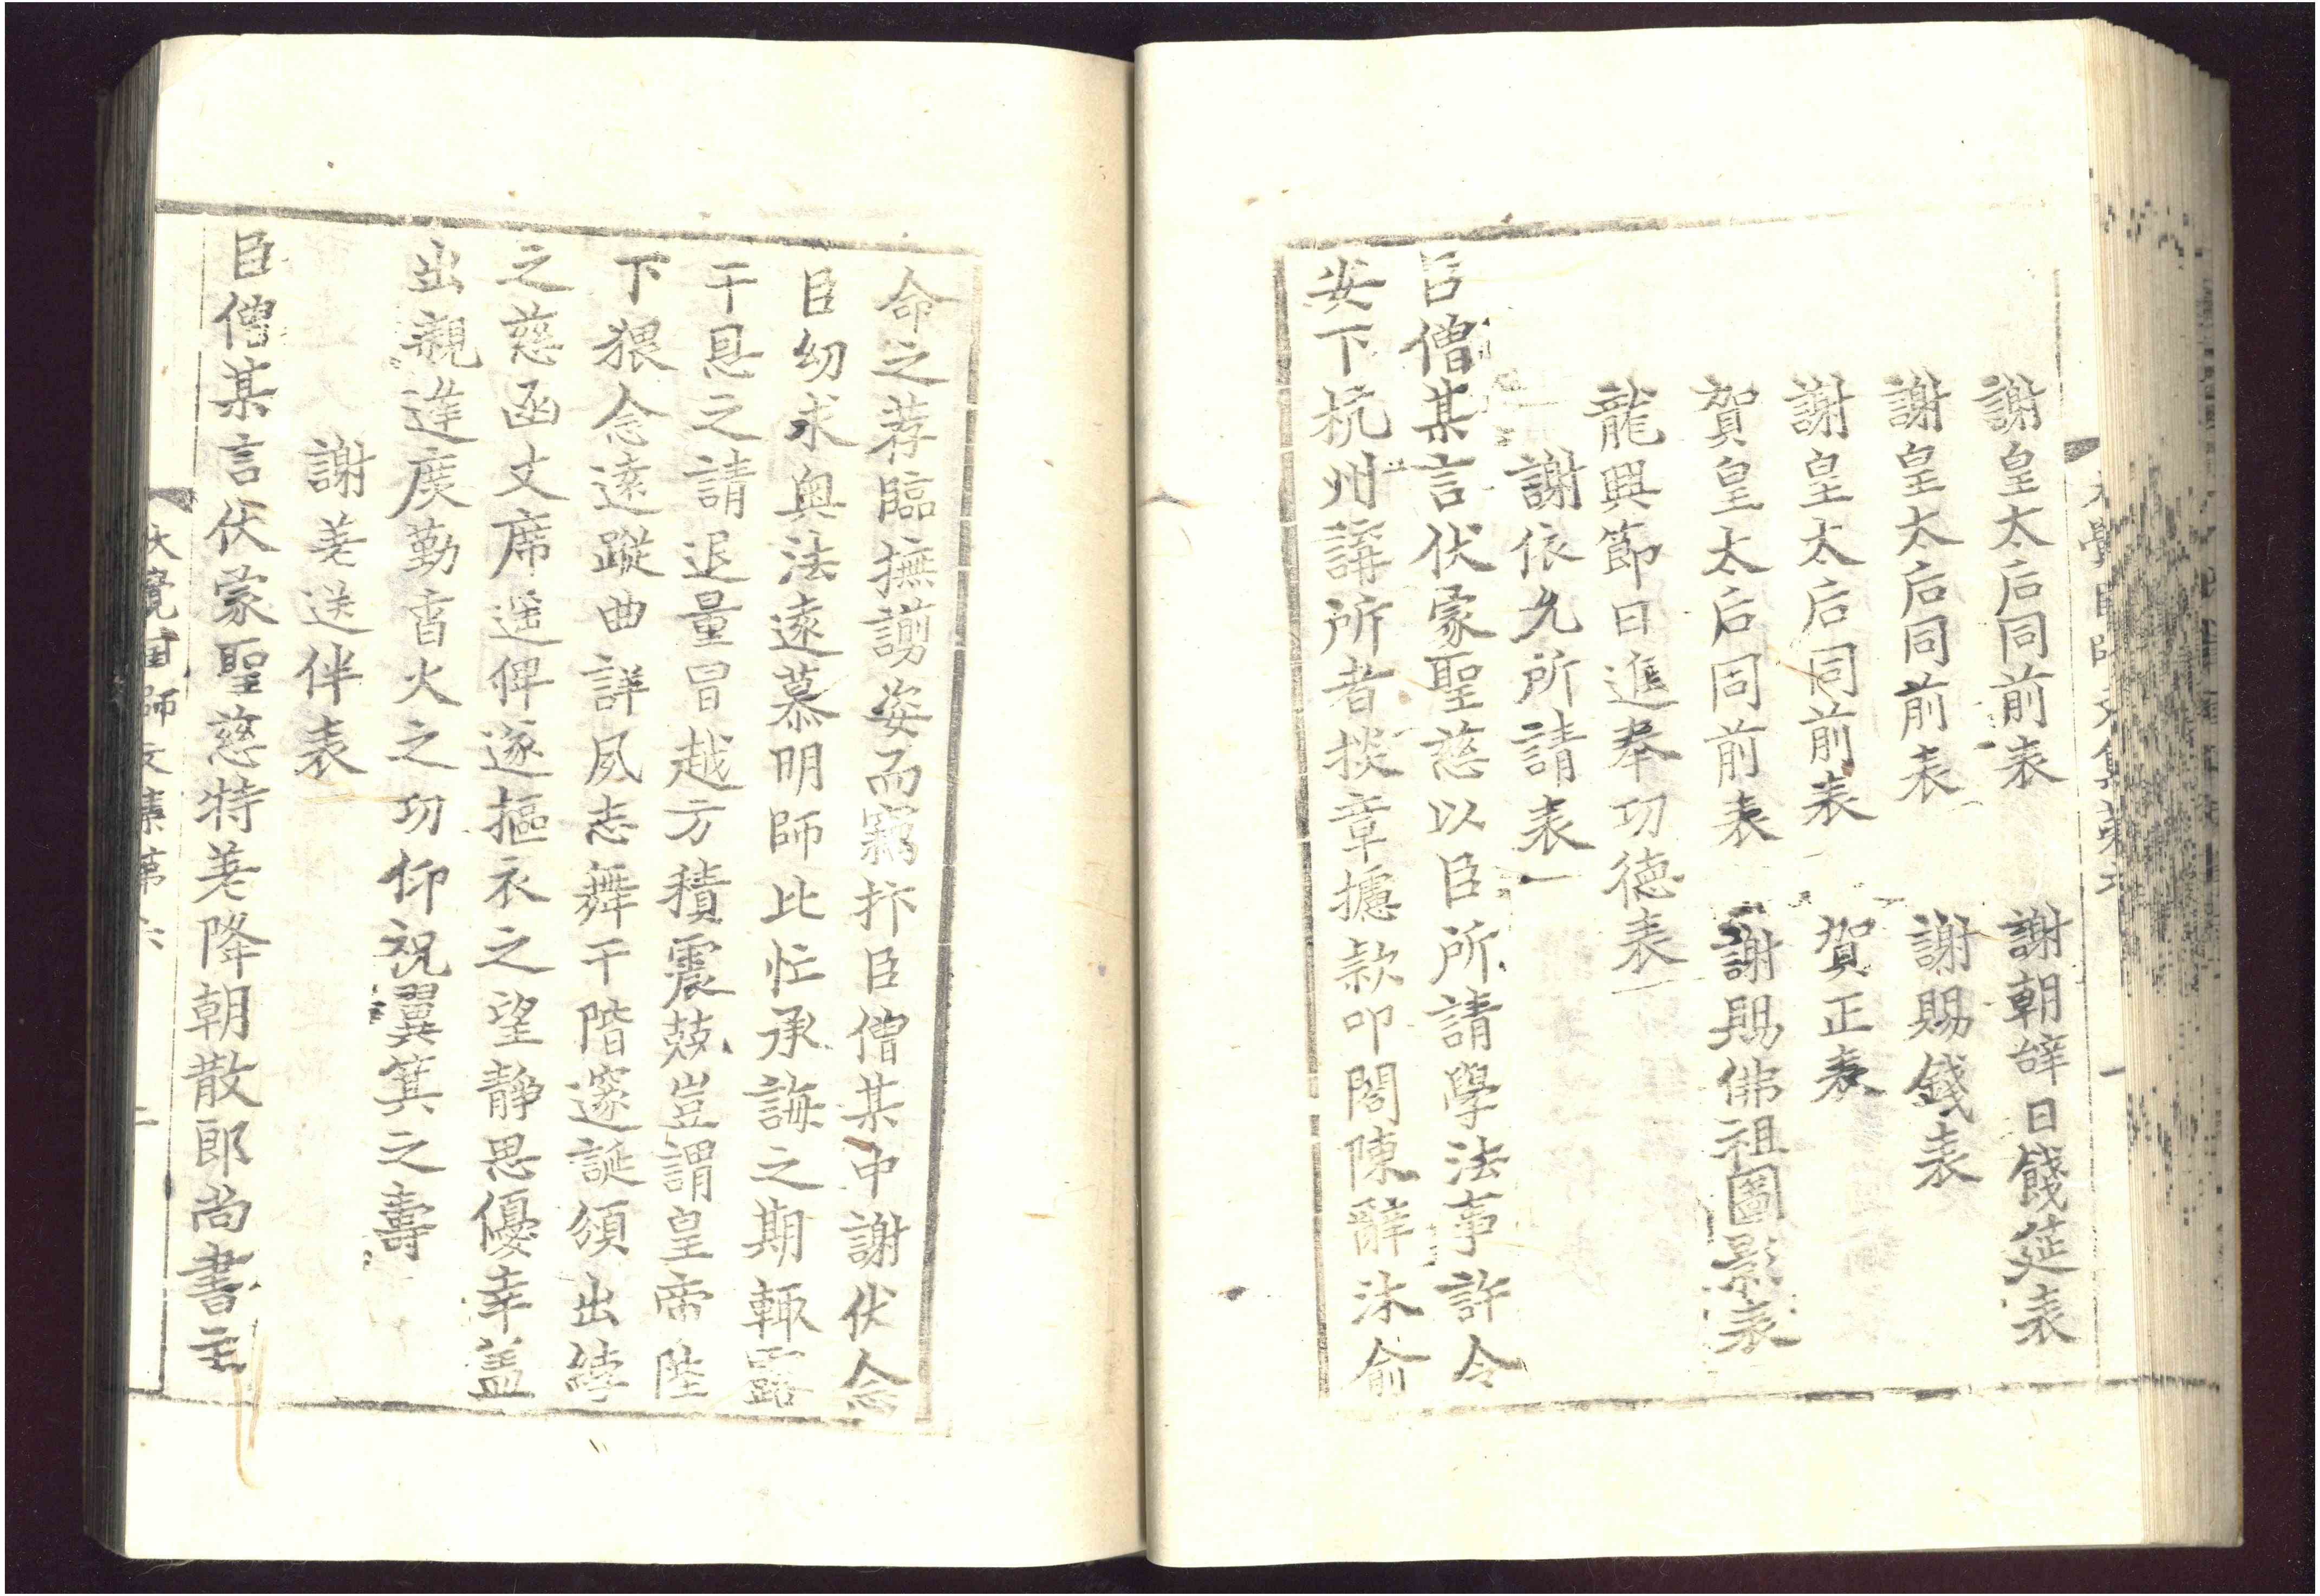 謝皇太后同前表　謝朝辞日餞筵表
謝皇太后同前表　謝賜錢表
謝皇太后同前表　賀正表
賀皇太后同前表　謝賜佛祖圖影表
龍興節日進奉功德表
謝依允所請表
臣僧某言伏蒙聖慈以臣所請學法事許令
安下杭州講所者掞章攄款叩閤陳辭沐俞
命之荐臨撫謭姿而竊抃臣僧某中謝伏念
臣幼求奥法遠慕明師比忙承誨之期輒露
干恩之請退量冒越方積震兢豈謂皇帝陛
下猥念遠蹤曲詳夙志舞干階邃誕頒出綍
之慈函丈席遥俾遂摳衣之望靜思優幸盖
出親逢庶勤香火之功仰祝翼箕之壽
謝差送伴表
臣僧某言伏蒙聖慈特差降朝散郎尚書主
大覺国師文集第六　二